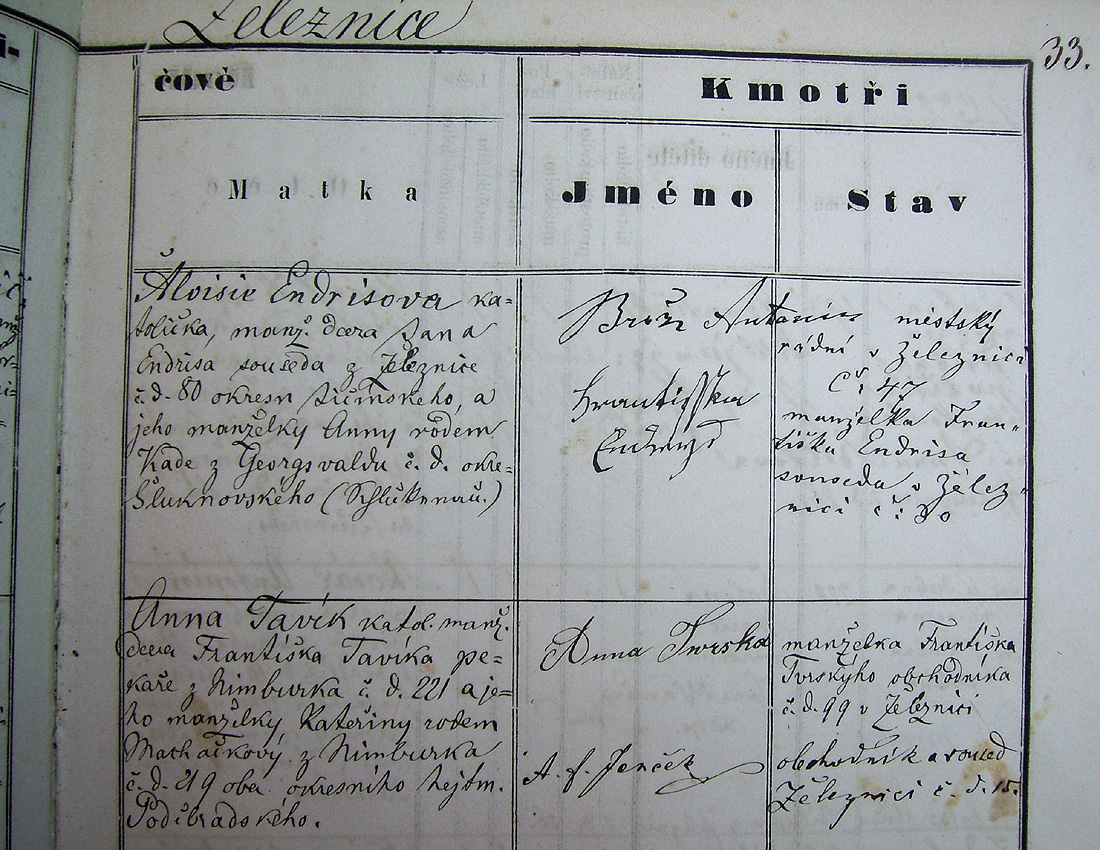 Železnice
33.
čově
Kmotři
Matka
Jméno
Stav
Aloisie Endrisova ka=
tolička, manž. dcera Jana
Endrisa souseda z Železnice
č. d. 80 okresu Jičínskeho, a
jeho manželky Anny rodem
Kade z Georgsvaldu č. d. okre=
Šluknovského (Schlukenau.)
Brož Antonín
Františka
městský
rádní v Železnici
č: 47
manželka Fran=
tiška Endrisa
souseda v Želez=
nici č: 80
Anna Tavík katol. manž.
dcera Františka Tavíka pe=
kaře z Nimburka č. d. 221 a je=
ho manželky Kateřiny rodem
Machačkový z Nimburka
č. d. 219 oba okresního hejtm.
Poděbradského.
Anna Tvrska
A. f. Jenček
manželka Františka
Tvrskýho obchodníka
č. d. 99 v Železnici
obchodník a soused
Železnici č. d. 15.